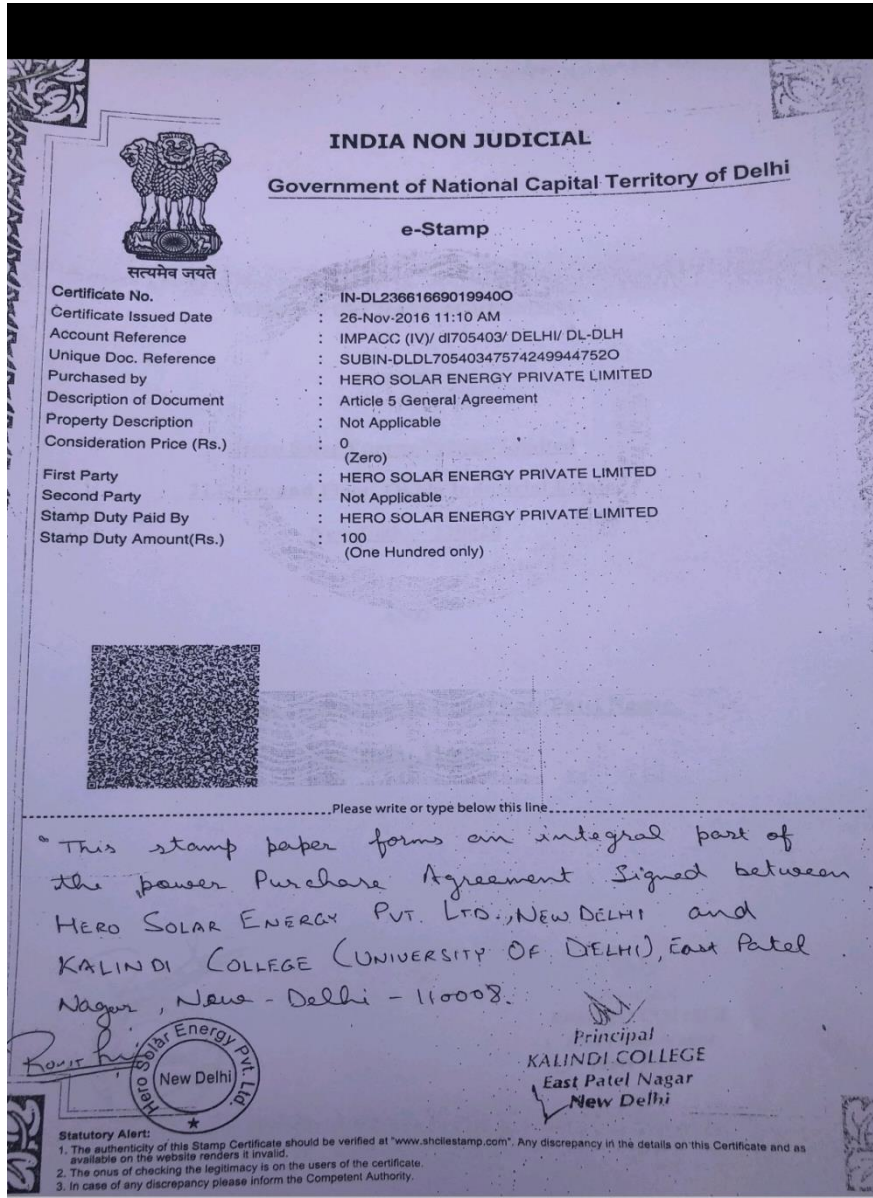 INDIA NON JUDICIAL
Government of National Capital Territory of Delhi
e-Stamp
सत्यमेव जयते
Certificate No. : IN-DL23661669019940O
Certificate Issued Date : 26-Nov-2016 11:10 AM
Account Reference : IMPACC (IV)/ dl705403/ DELHI/ DL-DLH
Unique Doc. Reference : SUBIN-DLDL70540347574249944752O
Purchased by : HERO SOLAR ENERGY PRIVATE LIMITED
Description of Document : Article 5 General Agreement
Property Description : Not Applicable
Consideration Price (Rs.) : 0
(Zero)
First Party : HERO SOLAR ENERGY PRIVATE LIMITED
Second Party : Not Applicable
Stamp Duty Paid By : HERO SOLAR ENERGY PRIVATE LIMITED
Stamp Duty Amount(Rs.) : 100
(One Hundred only)
Please write or type below this line
"This stamp paper forms an integral part of
the power Purchase Agreement Signed between
HERO SOLAR ENERGY PVT. LTD., NEW DELHI and
KALINDI COLLEGE (UNIVERSITY OF DELHI), East Patel
Nagar, New-Delhi-110008.
Hero Solar Energy Pvt. Ltd.
New Delhi
Principal
KALINDI COLLEGE
East Patel Nagar
New Delhi
Statutory Alert:
1. The authenticity of this Stamp Certificate should be verified at "www.shcilestamp.com". Any discrepancy in the details on this Certificate and as
available on the website renders it invalid.
2. The onus of checking the legitimacy is on the users of the certificate.
3. In case of any discrepancy please inform the Competent Authority.